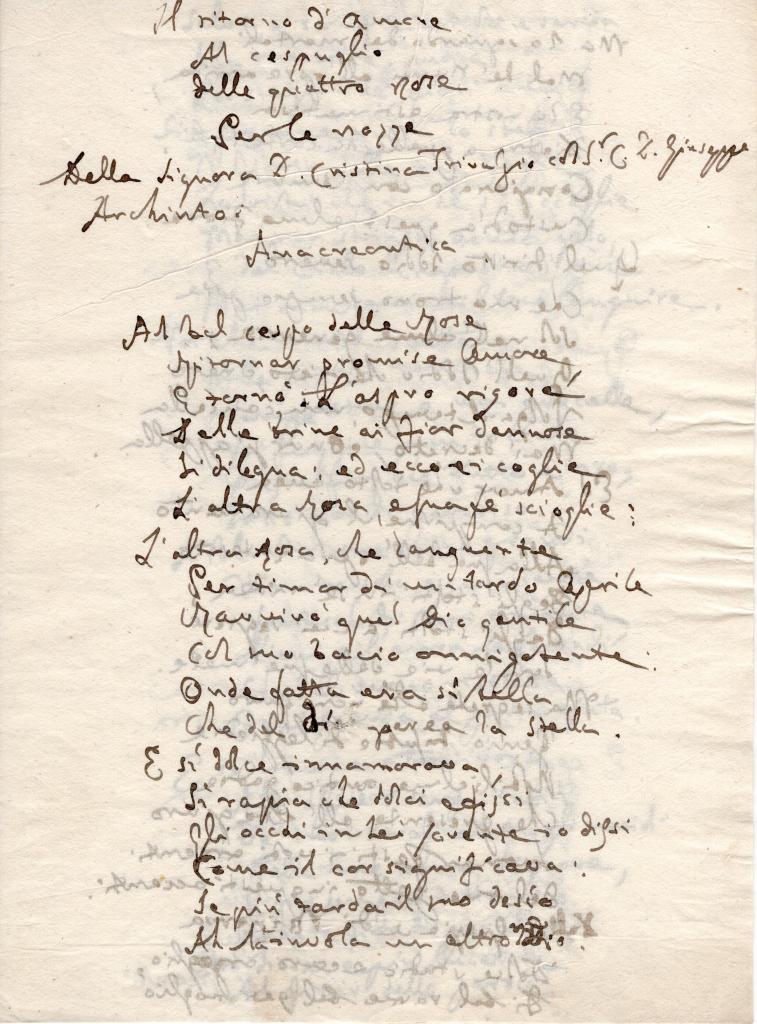 Il ritorno d'Amore
Al cespuglio
delle quattro rose
Per le nozze
Della Signora D. Cristina Trivulzio col Sr. C. D. Giuseppe
Archinto.
Anacreontica
Al bel cespo delle Rose
Ritornar promise Amore
E tornò. L'aspro rigore
Delle brine ai fior dannose
Si dilegua; ed ecco ei coglie
L'altra Rosa, e scioglie:
L'altra Rosa, che languente
Per timor di un tardo Aprile
Ravvivò quel Dio gentile
Col suo bacio onnipotente:
Onde fatta era sì bella
Che del dì parea la stella.
E sì dolce innamorava,
Sì rapia che dolci e fissi
Gli occhi in lei sovente io dissi
Come il cor significava:
Se più tarda il suo desio
Ah la invola un altro Dio.